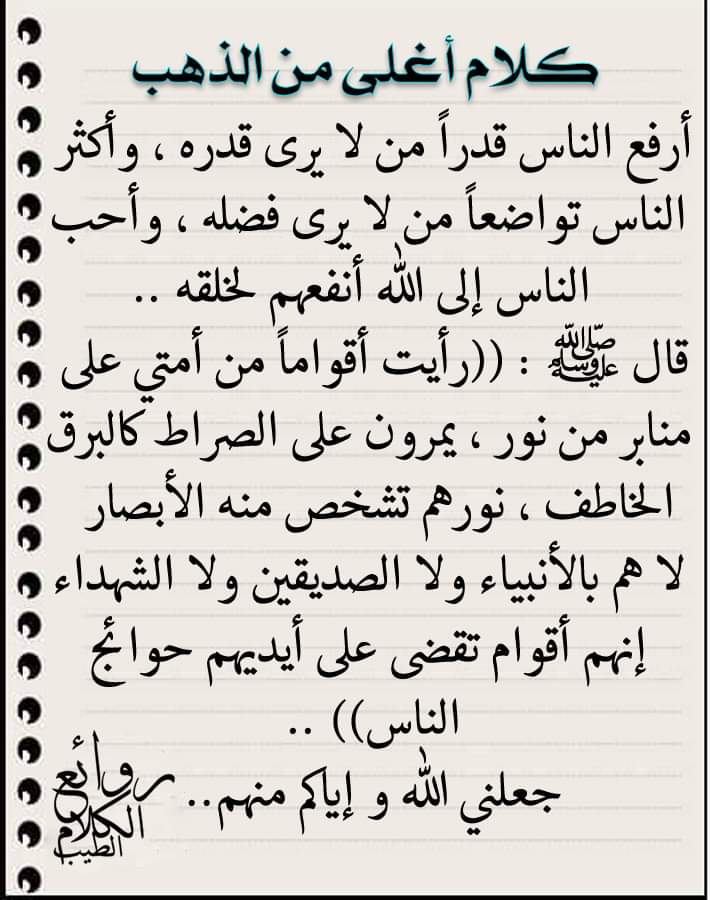 كلام أغلى من الذهب
أرفع الناس قدراً من لا يرى قدره ، وأكثر
الناس تواضعاً من لا يرى فضله ، وأحب
الناس إلى الله أنفعهم لخلقه ..
قال ﷺ : ((رأيت أقواماً من أمتي على
منابر من نور ، يمرون على الصراط كالبرق
الخاطف ، نورهم تشخص منه الأبصار
لا هم بالأنبياء ولا الصديقين ولا الشهداء
إنهم أقوام تقضى على أيديهم حوائج
الناس)) ..
جعلني الله و إياكم منهم..
روائع
الكلام
الطيب